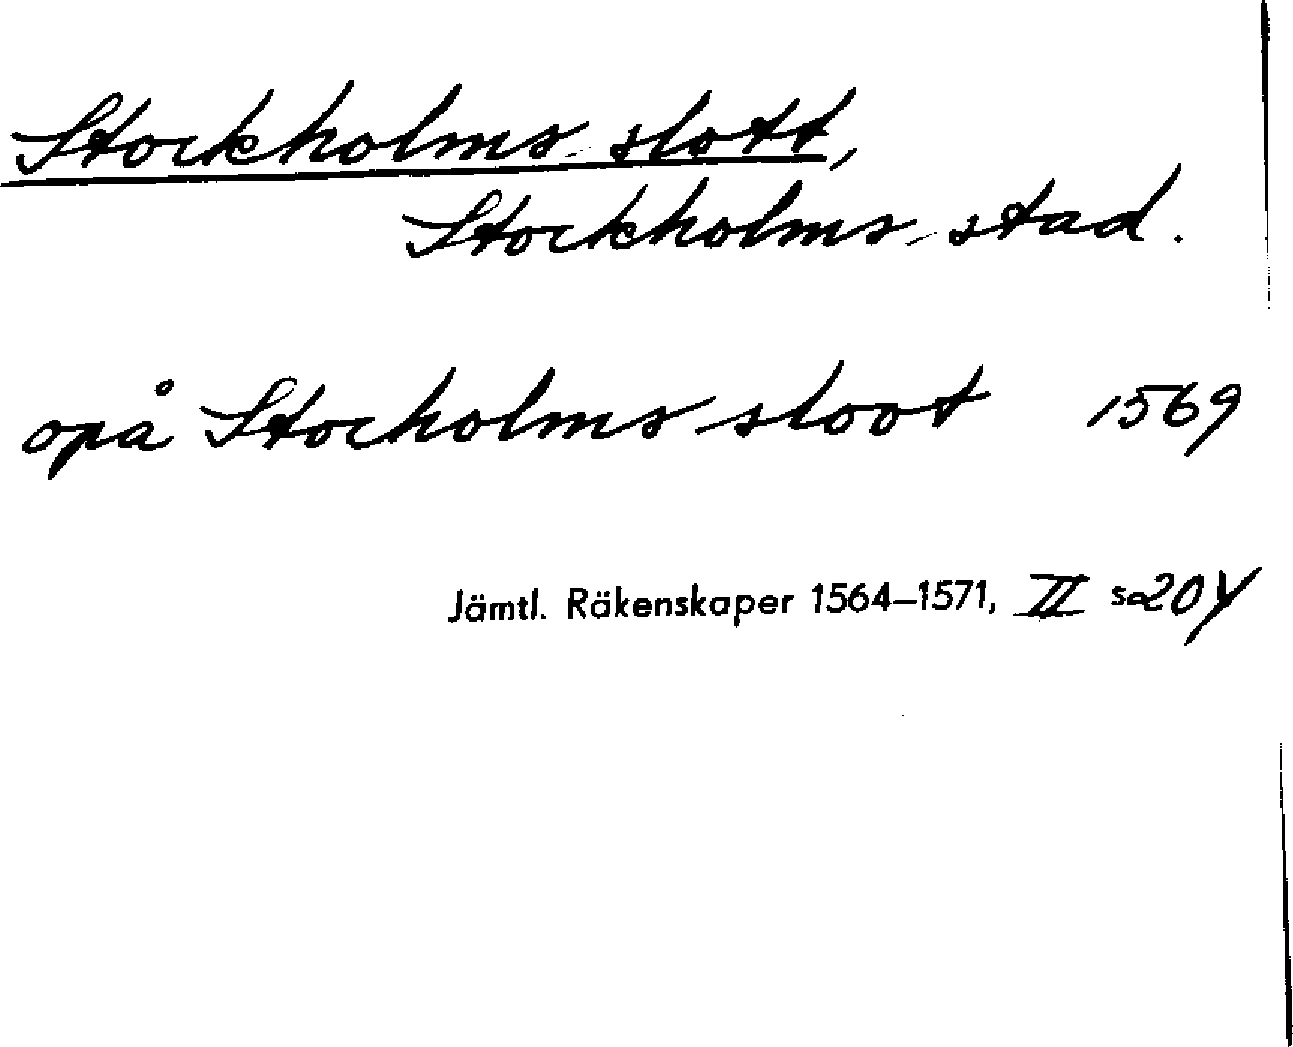 Stockholms slott,
Stockholms stad.
opå Stocholms sloot 1569
Jämtl. Räkenskaper 1564–1571, II s. 204